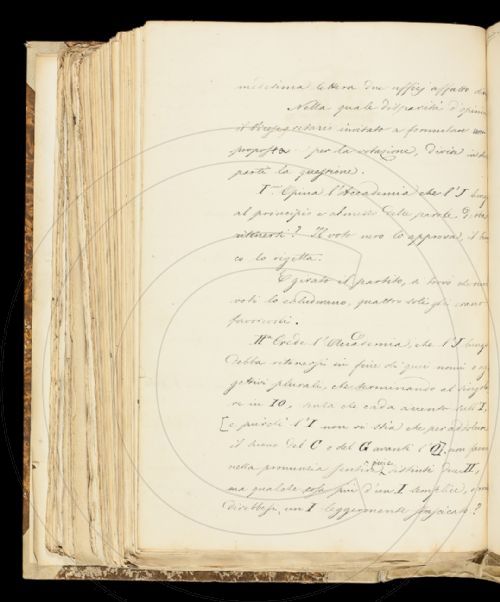 medesima lettera due uffizj affatto
Nella quale disparità d'opinio
il Vicesegretario invitato a formulare una
proposta per la votazione, divise
parti la questione.
I.° Opina l'Accademia che l'J lungo
al principio e al mezzo delle parole
Il voto nero lo approva, il bian
co lo rigetta.
E girato il partito, si trovò che
voti lo esclusero, quattro soli gli erano
favorevoli.
II.° Crede l'Accademia, che l'J lungo
debba ritenersi in fine di quei nomi o ag
gettivi plurali, che terminando al singola
re in IO, senza che cada accento sull'I,
[e purché l'I non vi stia che per addolcire
il suono del C o del G avanti l'O], non fanno
nella pronunzia sentire distinti due II,
ma qualche cosa più d'un I semplice,
direbbesi, un I leggermente strascicato?